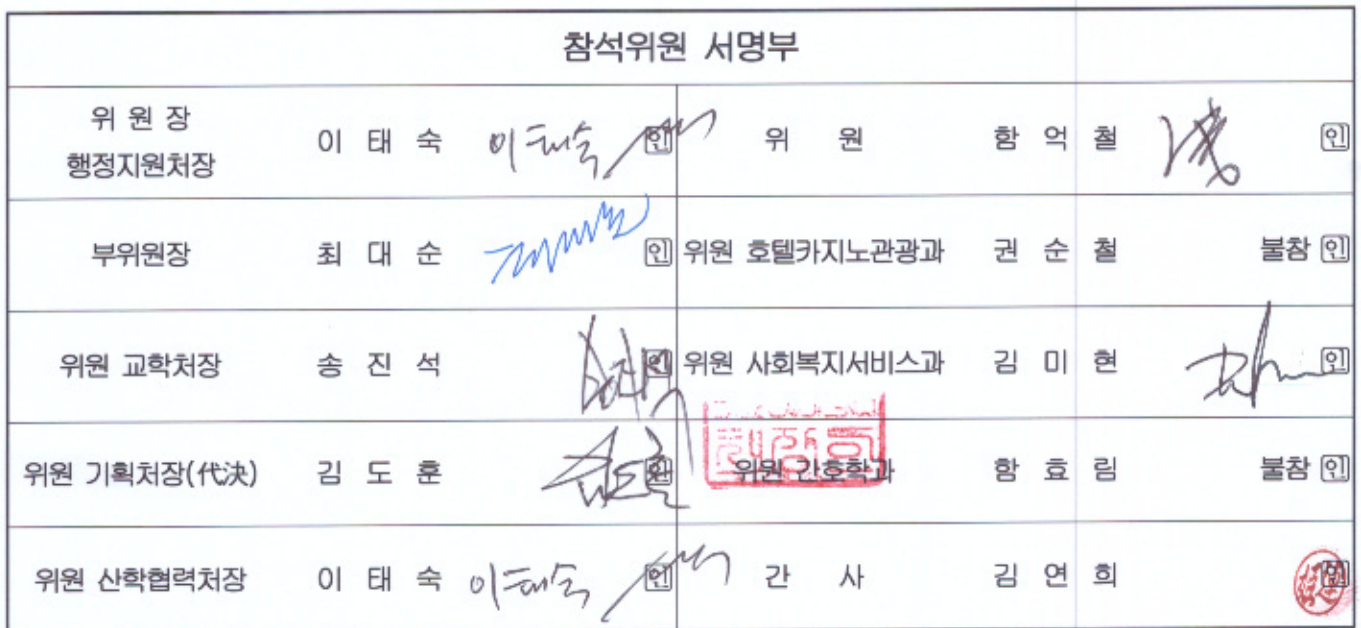 참석위원 서명부
위 원 장
행정지원처장
이 태 숙 이태숙 인
위 원 함 억 철 인
부위원장 최 대 순 인
위원 호텔카지노관광과 권 순 철 불참 인
위원 교학처장 송 진 석 인
위원 사회복지서비스과 김 미 현 인
위원 기획처장(代決) 김 도 훈 김도훈 인
위원 간호학과 함 효 림 불참 인
위원 산학협력처장 이 태 숙 이태숙 인
간 사 김 연 희 인